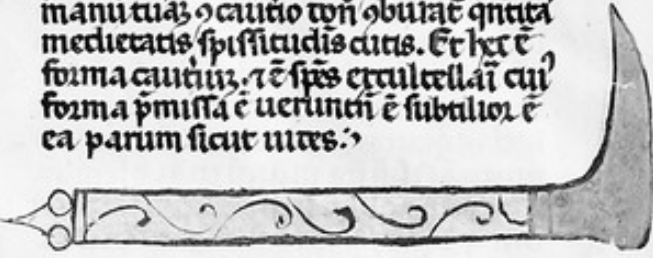 manu tua ⁊ cautio donec ꝯburat̄ q̄ntitatē
medietatis spissitudīs cutis. Et hec ē
forma cauterii. ⁊ ē spēs excultellaī cuiꝰ
forma p̄missa ē uerunt̄n ē subtilior ē
ea parum sicut uites